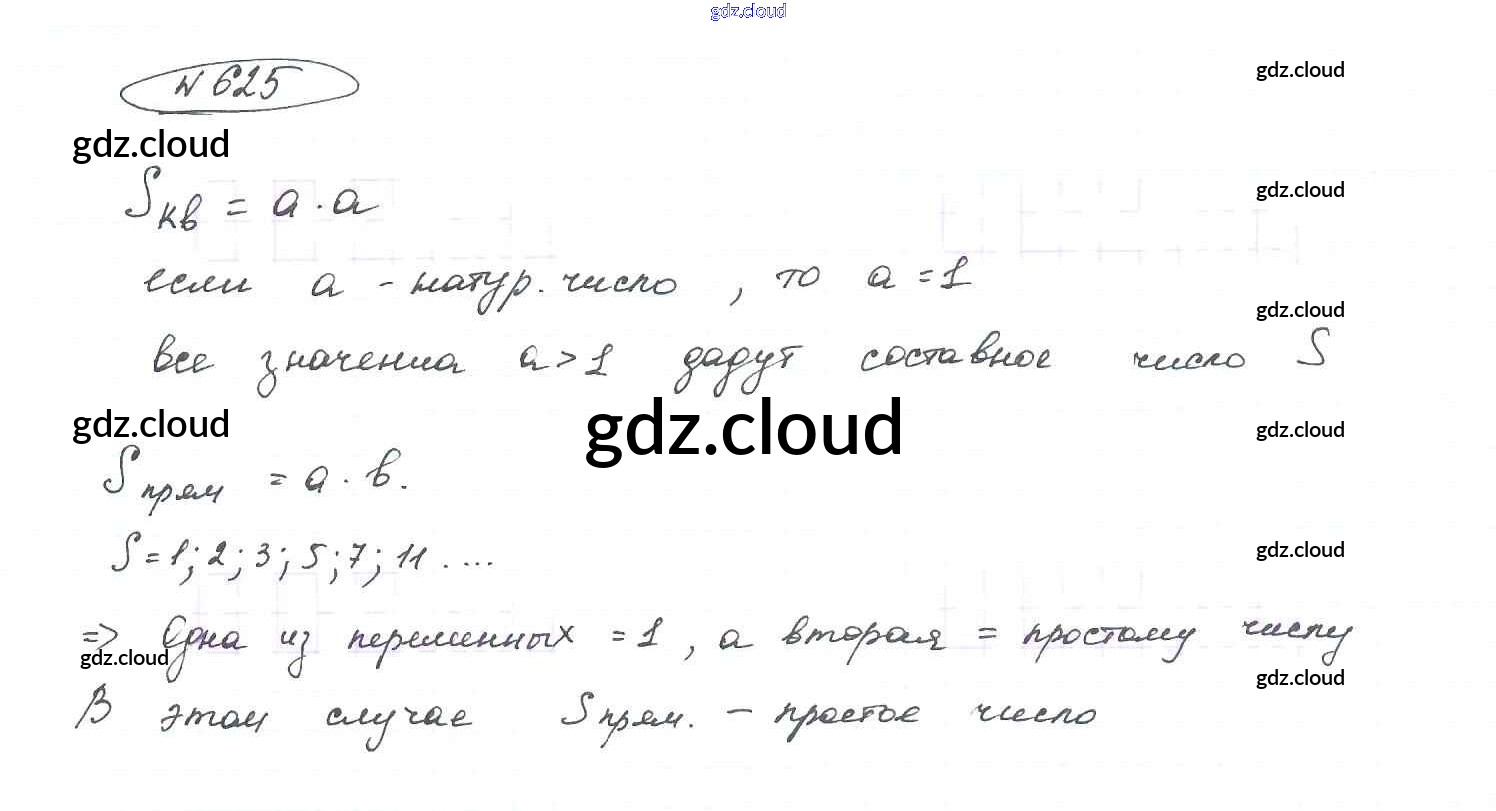 gdz.cloud
N 625
gdz.cloud
gdz.cloud
Sкв = a · a
gdz.cloud
если a - натур. число, то a = 1
gdz.cloud
все значения a > 1 дадут составное число S
gdz.cloud
gdz.cloud
gdz.cloud
Sпрям = a · b.
S = 1; 2; 3; 5; 7; 11 ....
gdz.cloud
=> Одна из переменных = 1, а вторая = простому числу
gdz.cloud
gdz.cloud
В этом случае Sпрям. - простое число